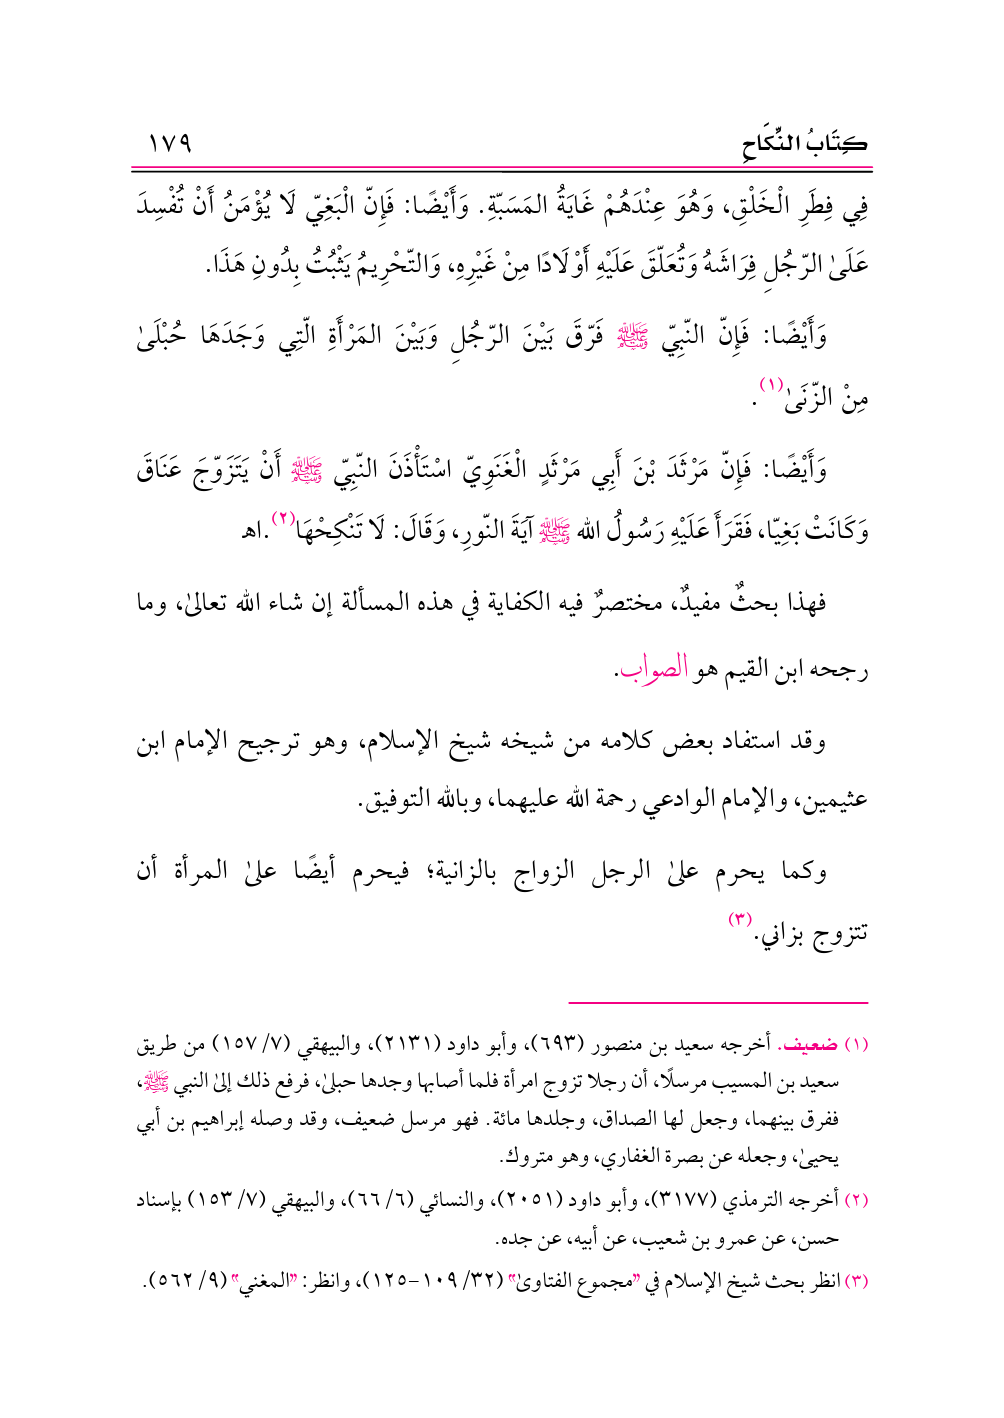 كِتَابُ النِّكَاحِ ١٧٩
فِي فِطَرِ الْخَلْقِ، وَهُوَ عِنْدَهُمْ غَايَةُ المَسَبّةِ. وَأَيْضًا: فَإِنّ الْبَغِيّ لَا يُؤْمَنُ أَنْ تُفْسِدَ
عَلَىٰ الرّجُلِ فِرَاشَهُ وَتُعَلّقَ عَلَيْهِ أَوْلَادًا مِنْ غَيْرِهِ، وَالتّحْرِيمُ يَثْبُتُ بِدُونِ هَذَا.
وَأَيْضًا: فَإِنّ النّبِيّ ﷺ فَرّقَ بَيْنَ الرّجُلِ وَبَيْنَ المَرْأَةِ الّتِي وَجَدَهَا حُبْلَىٰ
مِنْ الزّنَىٰ(١).
وَأَيْضًا: فَإِنّ مَرْثَدَ بْنَ أَبِي مَرْثَدٍ الْغَنَوِيّ اسْتَأْذَنَ النّبِيّ ﷺ أَنْ يَتَزَوّجَ عَنَاقَ
وَكَانَتْ بَغِيّا، فَقَرَأَ عَلَيْهِ رَسُولُ الله ﷺ آيَةَ النّورِ، وَقَالَ: لَا تَنْكِحْهَا(٢).اهـ
فهذا بحثٌ مفيدٌ، مختصرٌ فيه الكفاية في هذه المسألة إن شاء الله تعالىٰ، وما
رجحه ابن القيم هو الصواب.
وقد استفاد بعض كلامه من شيخه شيخ الإسلام، وهو ترجيح الإمام ابن
عثيمين، والإمام الوادعي رحمة الله عليهما، وبالله التوفيق.
وكما يحرم علىٰ الرجل الزواج بالزانية؛ فيحرم أيضًا علىٰ المرأة أن
تتزوج بزاني.(٣)
(١) ضعيف. أخرجه سعيد بن منصور (٦٩٣)، وأبو داود (٢١٣١)، والبيهقي (٧/ ١٥٧) من طريق
سعيد بن المسيب مرسلًا، أن رجلا تزوج امرأة فلما أصابها وجدها حبلىٰ، فرفع ذلك إلىٰ النبي ﷺ،
ففرق بينهما، وجعل لها الصداق، وجلدها مائة. فهو مرسل ضعيف، وقد وصله إبراهيم بن أبي
يحيىٰ، وجعله عن بصرة الغفاري، وهو متروك.
(٢) أخرجه الترمذي (٣١٧٧)، وأبو داود (٢٠٥١)، والنسائي (٦/ ٦٦)، والبيهقي (٧/ ١٥٣) بإسناد
حسن، عن عمرو بن شعيب، عن أبيه، عن جده.
(٣) انظر بحث شيخ الإسلام في "مجموع الفتاوىٰ" (٣٢/ ١٠٩-١٢٥)، وانظر: "المغني" (٩/ ٥٦٢).